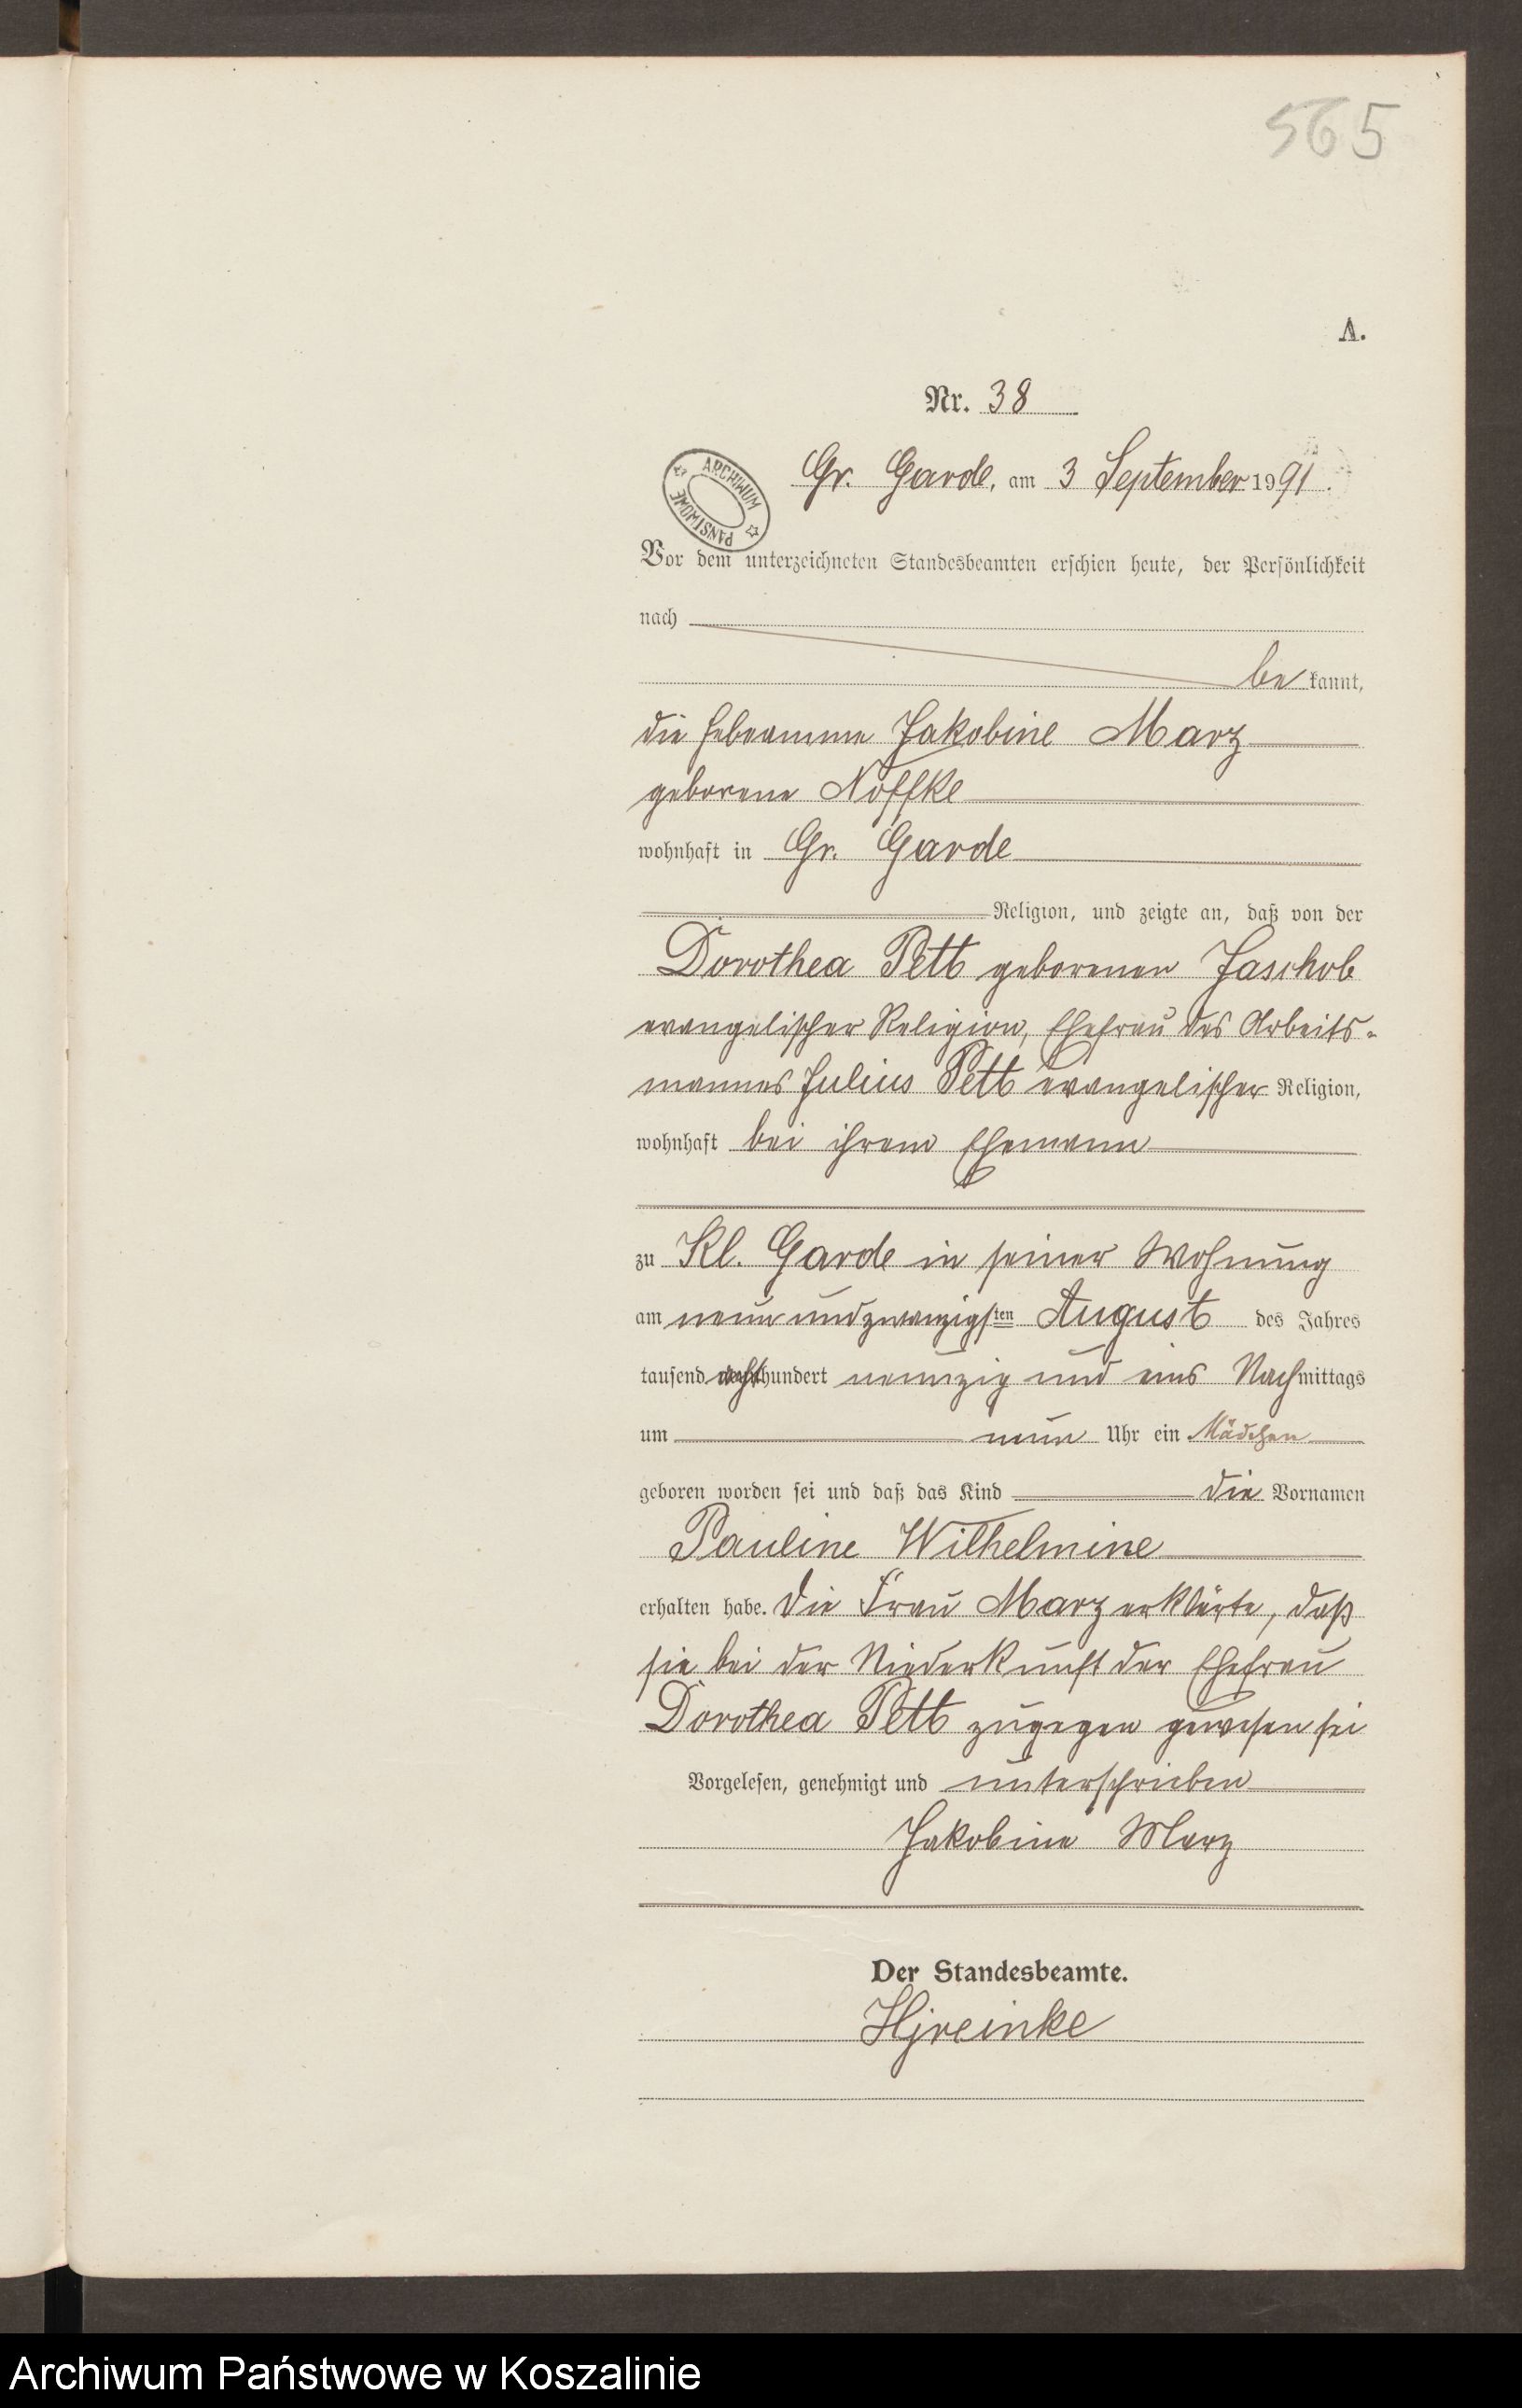 565
A.
Nr. 38
ARCHIWUM PAŃSTWOWE
Gr. Garde, am 3 September 1991.
Vor dem unterzeichneten Standesbeamten erschien heute, der Persönlichkeit
nach
be kannt,
die Hebeamme Jakobine Marz
geborene Noffke
wohnhaft in Gr. Garde
Religion, und zeigte an, daß von der
Dorothea Pett geborenen Jaschob
evangelischer Religion, Ehefrau des Arbeits-
mannes Julius Pett evangelischer Religion,
wohnhaft bei ihrem Ehemann
zu Kl. Garde in seiner Wohnung
am neun und zwanzigsten August des Jahres
tausend achthundert neunzig und eins Nachmittags
um neun Uhr ein Mädchen
geboren worden sei und daß das Kind die Vornamen
Pauline Wilhelmine
erhalten habe. Die Frau Marz erklärte, daß
sie bei der Niederkunft der Ehefrau
Dorothea Pett zugegen gewesen sei
Vorgelesen, genehmigt und unterschrieben
Jakobine Marz
Der Standesbeamte.
Archiwum Państwowe w Koszalinie